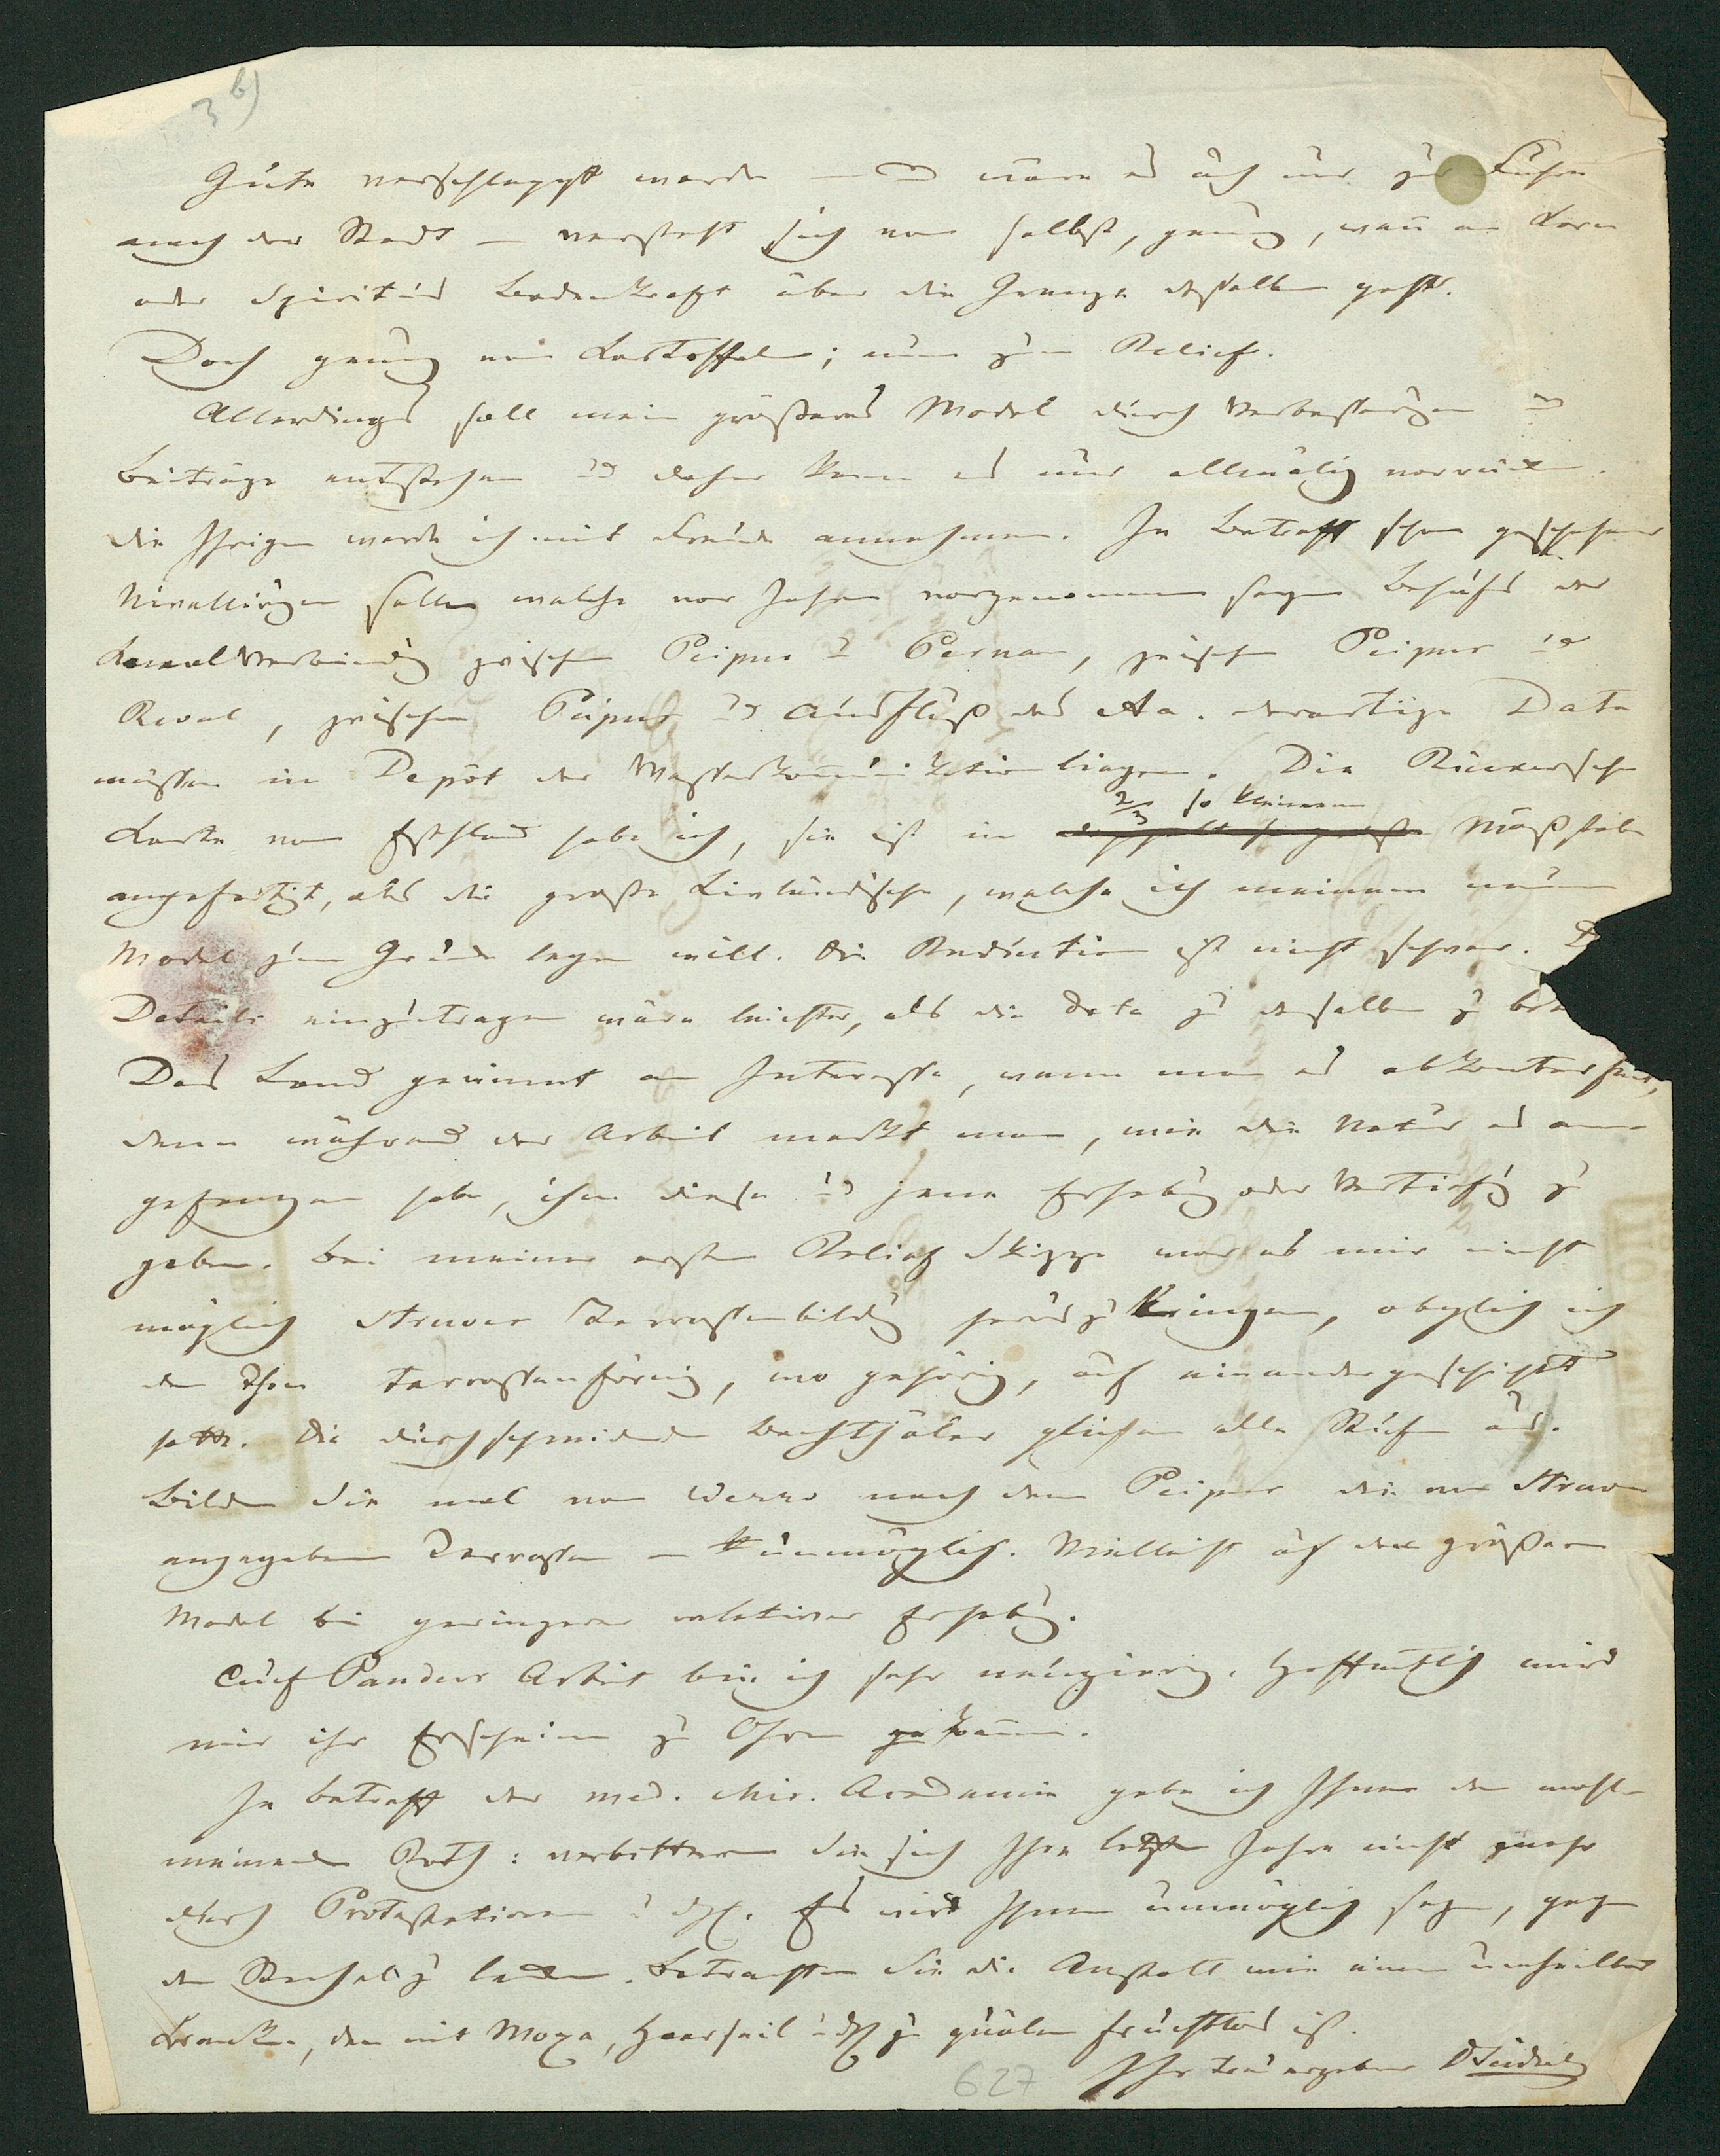 3 b)
Güte verschleppt werde — und wäre es auch nur zur Fuhre
nach der Stadt — versteht sich von selbst, genug, wenn an Korn
oder Spiritus Bodenkraft über die Grenze desselben geht.
Doch genug von Kartoffeln; nun zum Relief.
Allerdings soll mein größeres Model durch Verbesserungen und
Beiträge entstehen und daher kann es nur allmälig vorrücken.
die Ihrigen werde ich mit Freude annehmen. In Betreff schon geschehener
Nivellirungen sollen welche vor Jahren vorgenommen seyn Behufs der
Kanalverbindung zwischen Peipus u Pernau, zwischen Peipus und
Reval, zwischen Peipus und Ausfluß des Aa. derartige Data
müssen im Depôt der Wasserkommunikation liegen. Die Rückersche
Karte von Esthland habe ich, sie ist im 2/3 so kleineren Maßstabe
angefertigt, als die große Livländische, welche ich meinem neuen
Model zum Grunde legen will. Die Reduction ist nicht schwer.
Details einzutragen wäre leichter, als die Data zu denselben zu
Das Land gewinnt an Interesse, wenn man es abkonterfeit,
denn während der Arbeit merkt man, wie die Natur es ange-
gefangen habe, ihm diese und jene Erhebung oder Vertiefung zu
geben. Bei meiner ersten Relief Skizze war es mir nicht
möglich Struves Terrassenbildung herauszubringen, obgleich ich
den Thon terrassenförmig, wo gehörig, auf einandergeschichtet
hatte. Die durchschneidenden Bachthäler glichen alle Stufen aus.
Bilden Sie mal von Werro nach dem Peipus die von Struve
angegebenen Terrassen — unmöglich. Vielleicht auf dem größeren
Model bei geringerer relativer Erhebung.
Auf Panders Arbeit bin ich sehr neugierig. Hoffentlich wird
mir ihr Erscheinen zu Ohren kommen.
In Betreff der med. chir. Academie gebe ich Ihnen den wohl-
meinenden Rath: verbittern Sie sich Ihre letzten Jahre nicht mehr
durch Protestationen u dgl. Es wird Ihnen unmöglich seyn, gegen
den Stachel zu . Betrachten Sie die Anstalt wie einen unheilbar
Kranken, den mit Moxa, Haarseil u dgl zu quälen fruchtlos ist.
Ihr treu ergebener
627